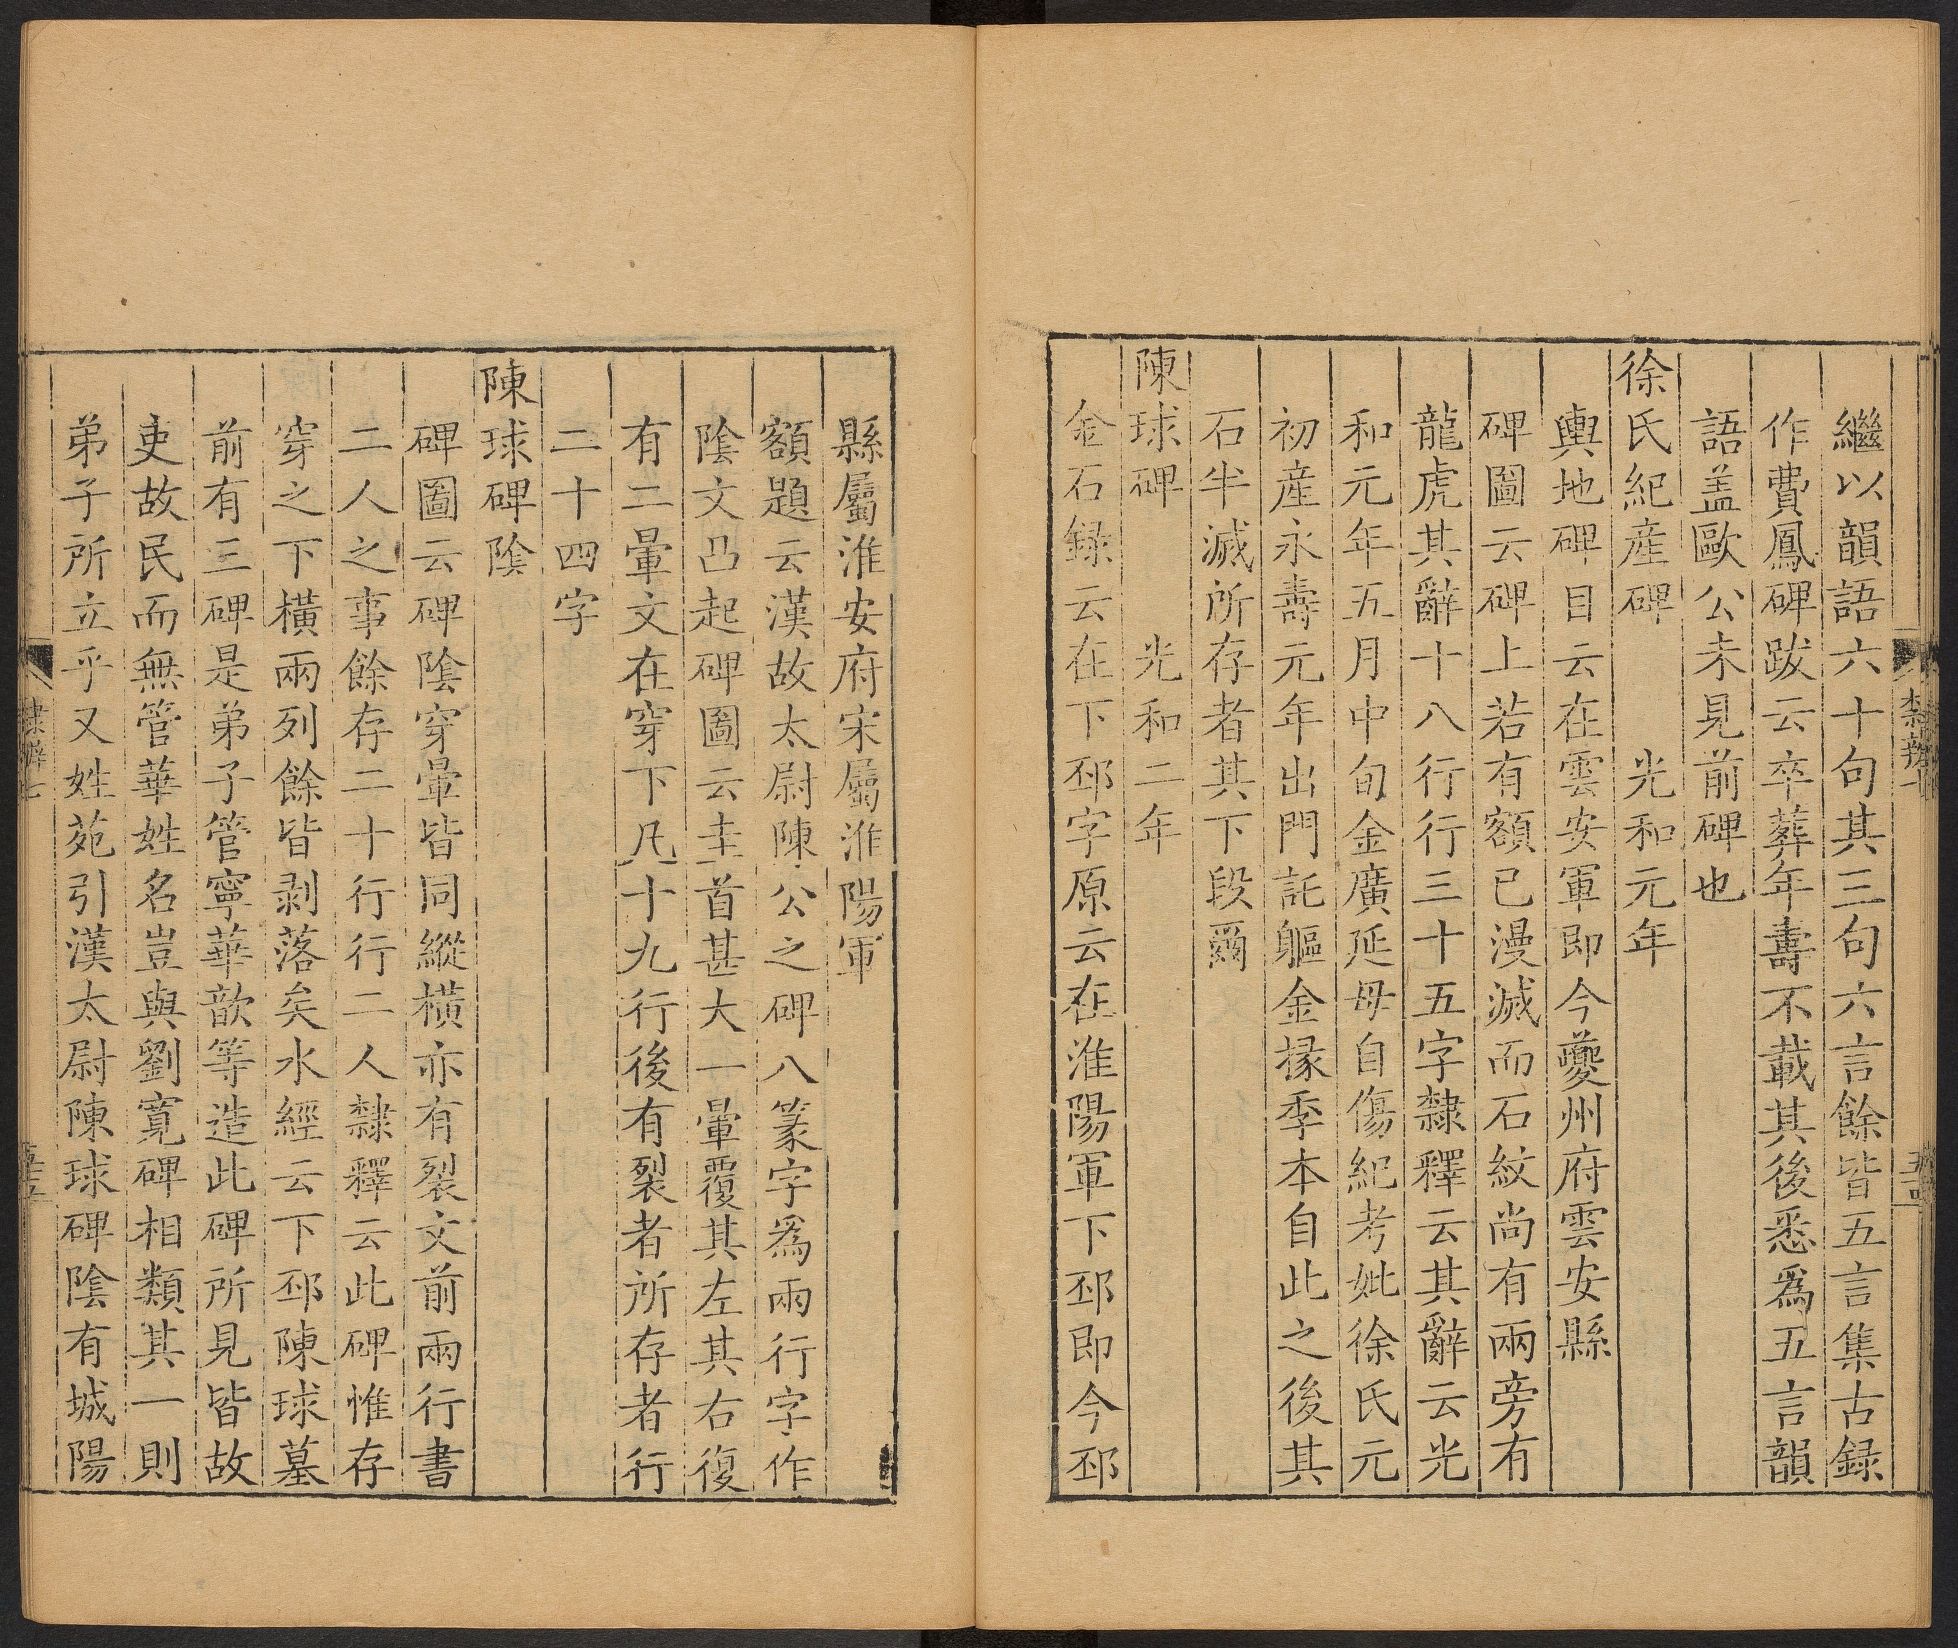 繼以韻語六十句其三句六言餘皆五言集古録
作費鳳碑跋云卒葬年壽不載其後悉爲五言韻
語盖歐公未見前碑也
徐氏紀産碑　光和元年
輿地碑目云在雲安軍即今夔州府雲安縣
碑圖云碑上若有額已漫滅而石紋尚有兩旁有
龍虎其辭十八行行三十五字隸釋云其辭云光
和元年五月中旬金廣延母自傷紀考妣徐氏元
初産永壽元年出門託軀金掾季本自此之後其
石半滅所存者其下段爾
陳球碑　光和二年
金石録云在下邳字原云在淮陽軍下邳即今邳
縣屬淮安府宋屬淮陽軍
額題云漢故太尉陳公之碑八篆字爲兩行字作
陰文凸起碑圖云圭首甚大一暈覆其左其右復
有二暈文在穿下凡十九行後有裂者所存者行
二十四字
陳球碑陰
碑圖云碑陰穿暈皆同縱横亦有裂文前兩行書
二人之事餘存二十行行二人隸釋云此碑惟存
穿之下横兩列餘皆剥落矣水經云下邳陳球墓
前有三碑是弟子管寧華歆等造此碑所見皆故
吏故民而無管華姓名豈與劉寛碑相類其一則
弟子所立乎又姓苑引漢太尉陳球碑陰有城陽
隸辨七